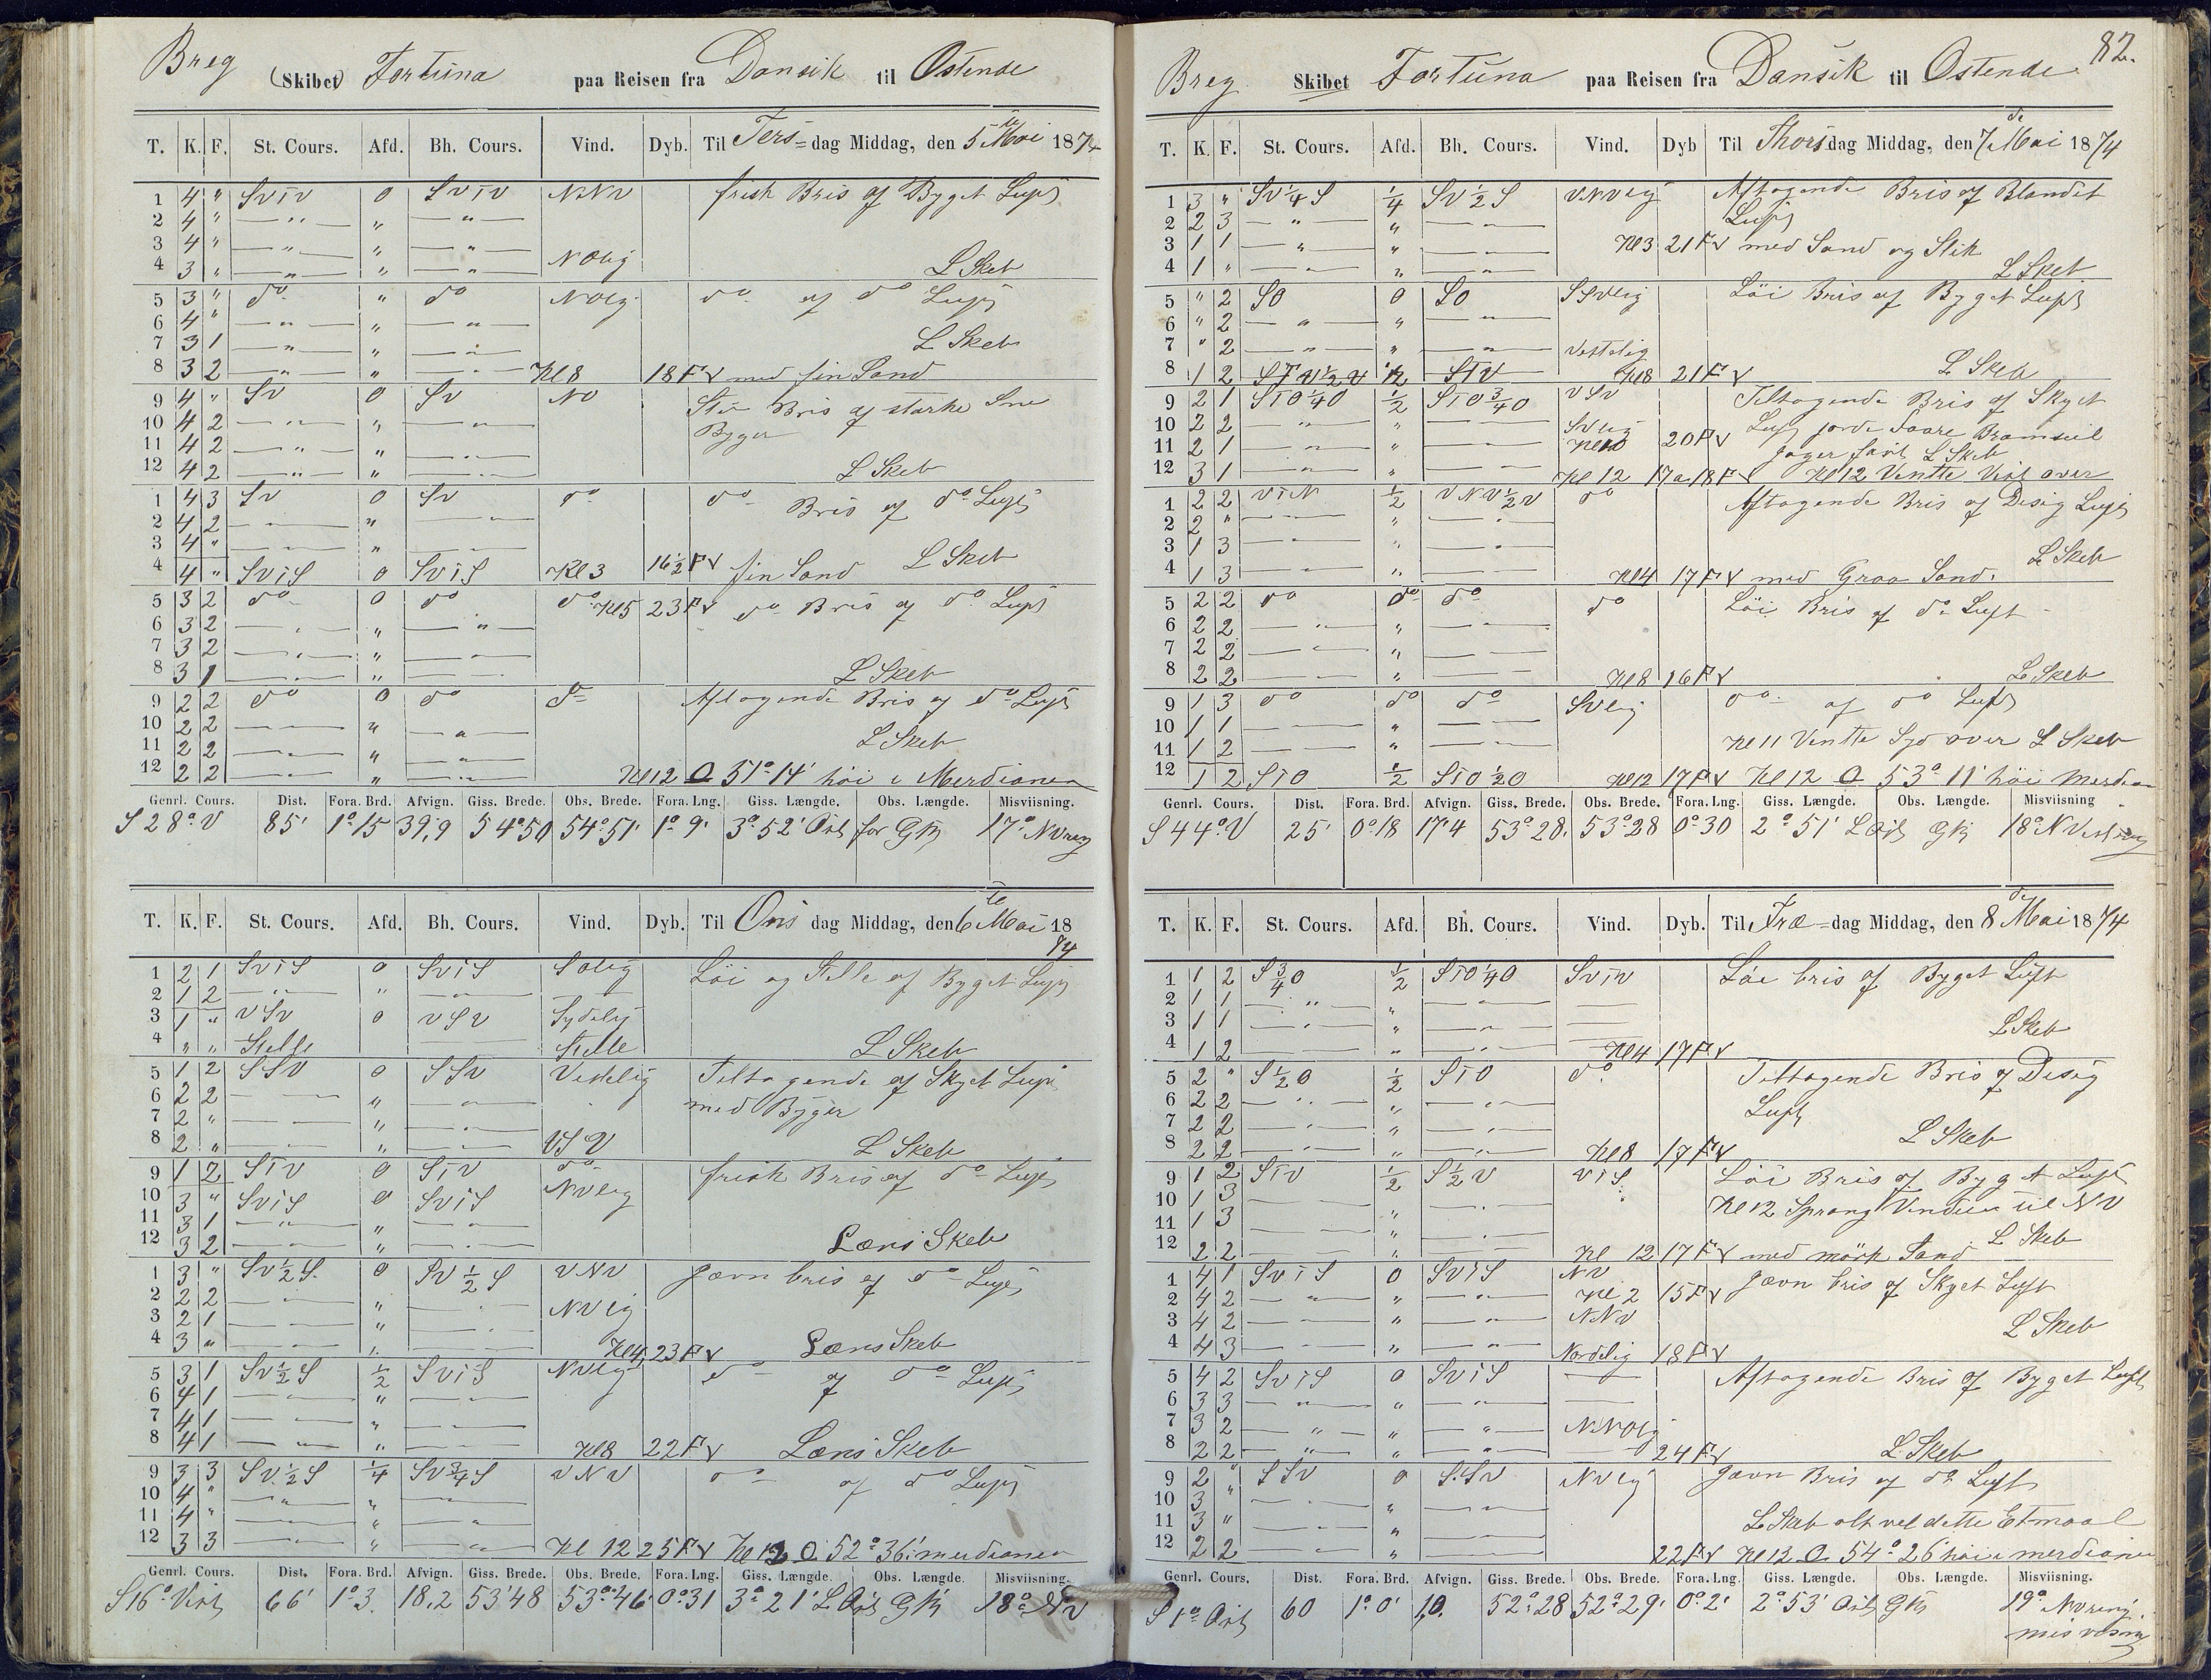 Breg (Skibet) Fortuna paa Reisen fra Dansik til Ostende
T. K. F. St. Cours. Afd. Bh. Cours. Vind. Dyb. Til Tersdag Middag, den 5te Mai 1874
1 4 " SvTv 0 SvTv NNv frisk Bris af Byget Luft
2 4 " — " — " — " —
3 4 " — " — " — " —
4 3 " — " — " — " — NOlig L Skeb
5 3 " do " do NOlig do af do Luft
6 4 " — " — " — " —
7 3 1 — " — " — " — L Skeb
8 3 2 — " — " — " — Kl 8 18 Fv med fin Sand
9 4 " Sv 0 Sv NO Stiv Bris af starke Sne
10 4 2 — " — " — " — Byger
11 4 2 — " — " — " —
12 4 2 — " — " — " — L Skeb
1 4 3 Sv 0 Sv do do Bris af do Luft
2 4 2 — " — " — " —
3 4 " — " — " — " —
4 4 " SviS 0 SviS Kl 3 16½ Fv fin Sand L Skeb
5 3 2 do 0 do do Kl 5 23 Fv do Bris af do Luft
6 3 2 — " — " — " —
7 3 2 — " — " — " —
8 3 1 — " — " — " — L Skeb
9 2 2 do 0 do do Aftagende Bris af do Luft
10 2 2 — " — " — " —
11 2 2 — " — " — " — L Skeb
12 2 2 — " — " — " — Kl 12 O 51° 14' höi i Merdianen
Genrl. Cours. Dist. Fora. Brd. Afvign. Giss. Brede. Obs. Brede. Fora. Lng. Giss. Længde. Obs. Længde. Misviisning.
S 28° V 85' 1° 15 39,9 54° 50 54° 51' 1° 9' 3° 52' Ost for G 17° NV
T. K. F. St. Cours. Afd. Bh. Cours. Vind. Dyb. Til Onsdag Middag, den 6te Mai 1874
1 2 1 SviS 0 SviS SOlig Löi og Stille af Byget Luft
2 1 2 — " — " —
3 1 " vSv 0 vSv Sydelig
4 " " Stille Stille L Skeb
5 1 2 SSv 0 SSv Vestelig Teltagende af Skyet Luft
6 2 2 — " — " — " — med Byger
7 2 " — " — " — " —
8 2 " — " — " — " — VSV L Skeb
9 1 2 STv 0 STv do frisk Bris af do Luft
10 3 " SviS 0 SviS NVlig
11 3 1 — " — " — " —
12 3 2 — " — " — " — Læns Skeb
1 3 " Sv½S 0 Sv½S VNV Jævn bris af do Luft
2 2 2 — " — " — " — NVlig
3 2 1 — " — " — " —
4 3 " — " — " — " — Kl 4 23 Fv Læns Skeb
5 3 1 Sv½S ½ SviS NVlig do af do Luft
6 4 1 — " — " — " —
7 4 1 — " — " — " —
8 4 1 — " — " — " — Kl 8 22 Fv Læns Skeb
9 3 3 Sv½S ¼ Sv¾S VNV do af do Luft
10 4 " — " — " — " —
11 4 " — " — " — " —
12 3 3 — " — " — " — Kl 12 25 Fv Kl 12 O 52° 36' merdianen
Genrl. Cours. Dist. Fora. Brd. Afvign. Giss. Brede. Obs. Brede. Fora. Lng. Giss. Længde. Obs. Længde. Misviisning.
S 16° Vest 66' 1° 3 18,2 53° 48 53° 46' 0° 31 3° 21' L Ost G 18° NV
82.
Breg Skibet Fortuna paa Reisen fra Dansik til Ostende
T. K. F. St. Cours. Afd. Bh. Cours. Vind. Dyb Til Thorsdag Middag, den 7de Mai 1874
1 3 " Sv¼S ¼ Sv½S VNVlig Aftagende Bris af Blandet
2 2 3 — " — " — " — Luft
3 1 1 — " — " — " — Kl 3 21 Fv med Sand og Slik
4 1 " — " — " — " — L Skeb
5 " 2 SO 0 SO SSVlig Löi Bris af Byget Luft
6 " 2 — " — " — " —
7 " 2 — " — " — " — Vestelig
8 1 2 STV½V ½ STV Kl 8 21 Fv L Skeb
9 2 1 STO¼O ½ STO¾O VSV Teltagende Bris af Skyet
10 2 2 — " — " — " — SVlig Luft Bramseil
11 2 1 — " — " — " — Kl 10 20 Fv Jager fast L Skeb
12 3 1 — " — " — " — Kl 12 17 a 18 Fv Kl 12 Ventte Vest over
1 2 2 ViN ½ VNV½V do Aftagende Bris af Desig Luft
2 2 " — " — " — " —
3 1 3 — " — " — " —
4 1 3 — " — " — " — L Skeb
Kl 4 17 Fv med Graa Sand.
5 2 2 do do do do Löi Bris af do Luft
6 2 2 — " — " — " —
7 2 2 — " — " — " —
8 2 2 — " — " — " — Kl 8 16 Fv L Skeb
9 1 3 do do do SVlig do af do Luft
10 1 1 — " — " — " —
11 1 2 — " — " — " — Kl 11 Ventte Syd over L Skeb
12 1 2 STO ½ STO½O Kl 12 17 Fv Kl 12 O 53° 11' höi merdian
Genrl. Cours. Dist. Fora. Brd. Afvign. Giss. Brede. Obs. Brede. Fora. Lng. Giss. Længde. Obs. Længde. Misviisning
S 44° V 25' 0° 18 17'4 53° 28' 53° 28 0° 30 2° 51' L Ost G 18° N Vest
T. K. F. St. Cours. Afd. Bh. Cours. Vind. Dyb. Til Frædag Middag, den 8de Mai 1874
1 1 2 S¾O ½ STO¼O SvTv Löi bris af Byget Luft
2 1 1 — " — " — " —
3 1 1 — " — " — " — L Skeb
4 1 2 — " — " — " — Kl 4 17 Fv
5 2 " S½O ½ STO do Teltagende Bris af Desig
6 2 2 — " — " — " — Luft
7 2 2 — " — " — " — L Skeb
8 2 2 — " — " — " — Kl 8 17 Fv
9 1 2 STv ½ S½V ViS Löi Bris af Byget Luft
10 1 3 — " — " — " — Kl 12 Sprang Vinden til NV
11 1 3 — " — " — " — L Skeb
12 2 2 — " — " — " — Kl 12 17 Fv med mörk Sand
1 4 1 SviS 0 SviS NV Jævn bris af Skyet Luft
2 4 2 — " — " — " — Kl 2 15 Fv
3 4 2 — " — " — " — NNV L Skeb
4 4 3 — " — " — " — Nordelig 18 Fv
5 4 2 SviS 0 SviS — Aftagende Bris af Byget Luft
6 3 3 — " — " — " —
7 3 2 — " — " — " — NNOlig
8 2 2 — " — " — " — 24 Fv L Skeb
9 2 " SSv 0 SSv NVlig Jævn Bris af do Luft
10 3 " — " — " — " —
11 3 " — " — " — " — L Skeb alt vel dette Etmaal
12 2 2 — " — " — " — 22 Fv Kl 12 O 54° 26' höi i merdianen
Genrl. Cours. Dist. Fora. Brd. Afvign. Giss. Brede. Obs. Brede. Fora. Lng. Giss. Længde. Obs. Længde. Misviisning.
S 1° Ost 60 1° 0' 1,0. 52° 28 52° 29' 0° 2' 2° 53' Ost G 19°